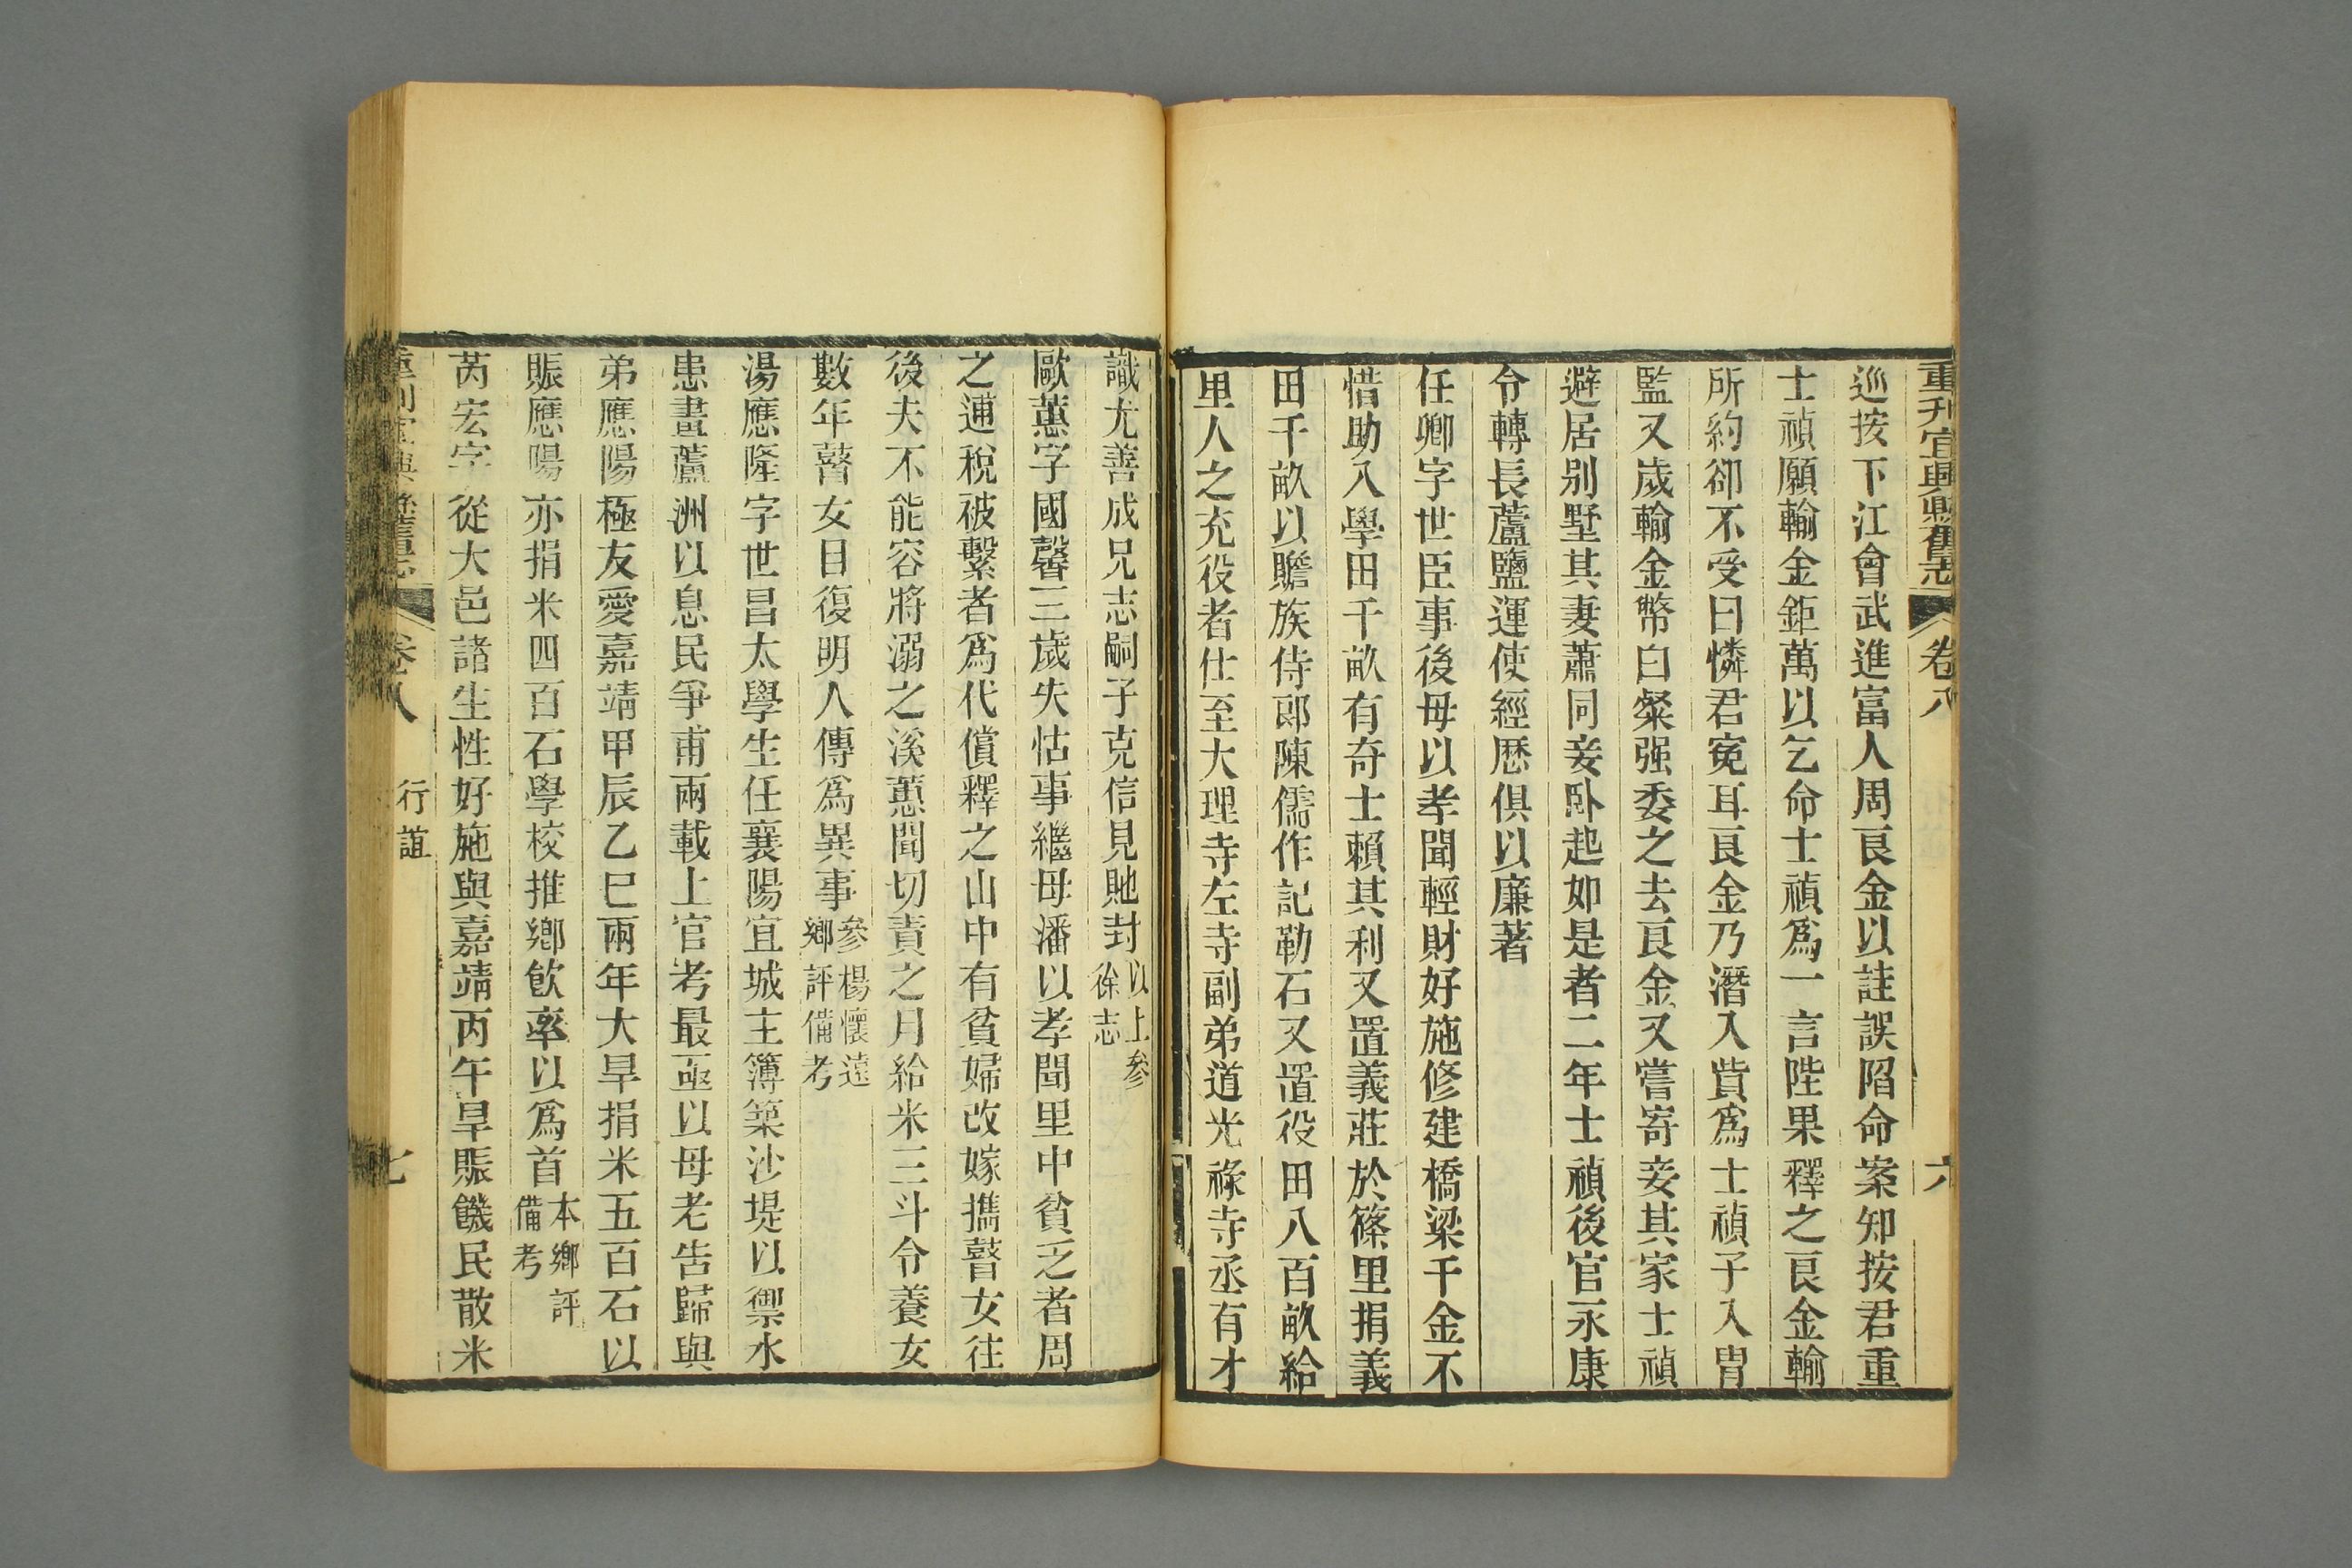 重刋宜興縣舊志 卷八 六
巡按下江會武進富人周良金以詿誤陷命案知按君重
士禎願輸金鉅萬以乞命士禎爲一言陛果釋之良金輸
所約卻不受曰憐君寃耳良金乃潛入貲爲士禎子入胄
監又歲輸金幣白粲强委之去良金又嘗寄妾其家士禎
避居别墅其妻蕭同妾卧起如是者二年士禎後官永康
令轉長蘆鹽運使經歷俱以廉著
任卿字世臣事後母以孝聞輕財好施修建橋梁千金不
惜助入學田千畝有奇士賴其利又置義莊於篠里捐義
田千畝以贍族侍郎陳儒作記勒石又置役田八百畝給
里人之充役者仕至大理寺左寺副弟道光祿寺丞有才
識尤善成兄志嗣子克信見貤封以上參徐志
歐蕙字國馨三歲失怙事繼母潘以孝聞里中貧乏者周
之逋稅被繫者爲代償釋之山中有貧婦改嫁攜瞽女往
後夫不能容將溺之溪蕙聞切責之月給米三斗令養女
數年瞽女目復明人傳爲異事參楊懷遠鄉評備考
湯應隆字世昌太學生任襄陽宜城主簿築沙堤以禦水
患畫蘆洲以息民爭甫兩載上官考最亟以母老告歸與
弟應陽極友愛嘉靖甲辰乙巳兩年大旱捐米五百石以
賑應陽亦捐米四百石學校推鄉飲率以爲首本鄉評備考
芮宏字從大邑諸生性好施與嘉靖丙午旱賑饑民散米
重刋宜興縣舊志 卷八 行誼 七